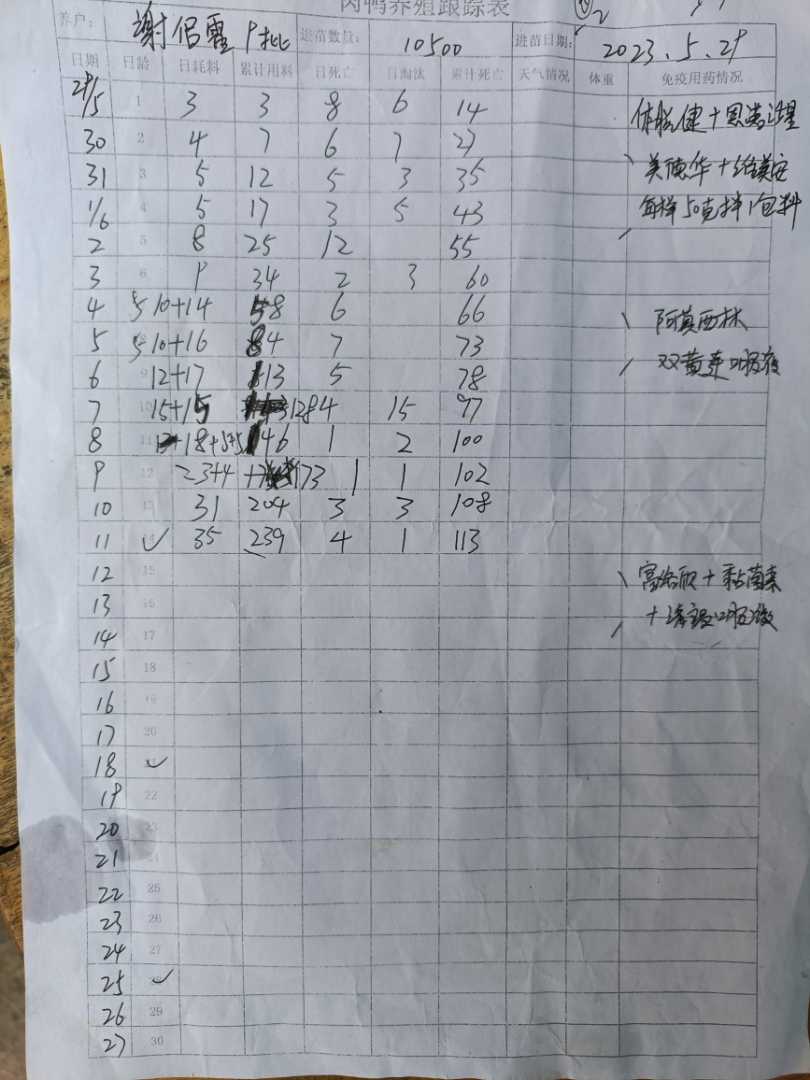 肉鸭养殖跟踪表 ②
养户: 谢侣霞 9批 进苗数量: 10500 进苗日期: 2023.5.29
日期 日龄 日耗料 累计用料 日死亡 日淘汰 累计死亡 天气情况 体重 免疫用药情况
29/5 1 3 3 8 6 14
30 2 4 7 6 7 27 美德华
31 3 5 12 5 3 35
1/6 4 5 17 3 5 43 每样50克拌1包料
2 5 8 25 12 55
3 6 9 34 2 3 60
4 5 10+14 58 6 66 阿莫西林
5 5 10+16 84 7 73 双黄连口服液
6 9 12+17 113 5 78
7 10 15+15 128 4 15 97
8 11 +18+5+5 146 1 2 100
9 12 23+4 173 1 1 102
10 13 31 204 3 3 108
11 14 35 239 4 1 113
12 15 + 黏菌素
13 16
14 17
15 18
16 19
17 20
18
19 22
20 23
21 24
22 25
23 26
24 27
25
26 29
27 30